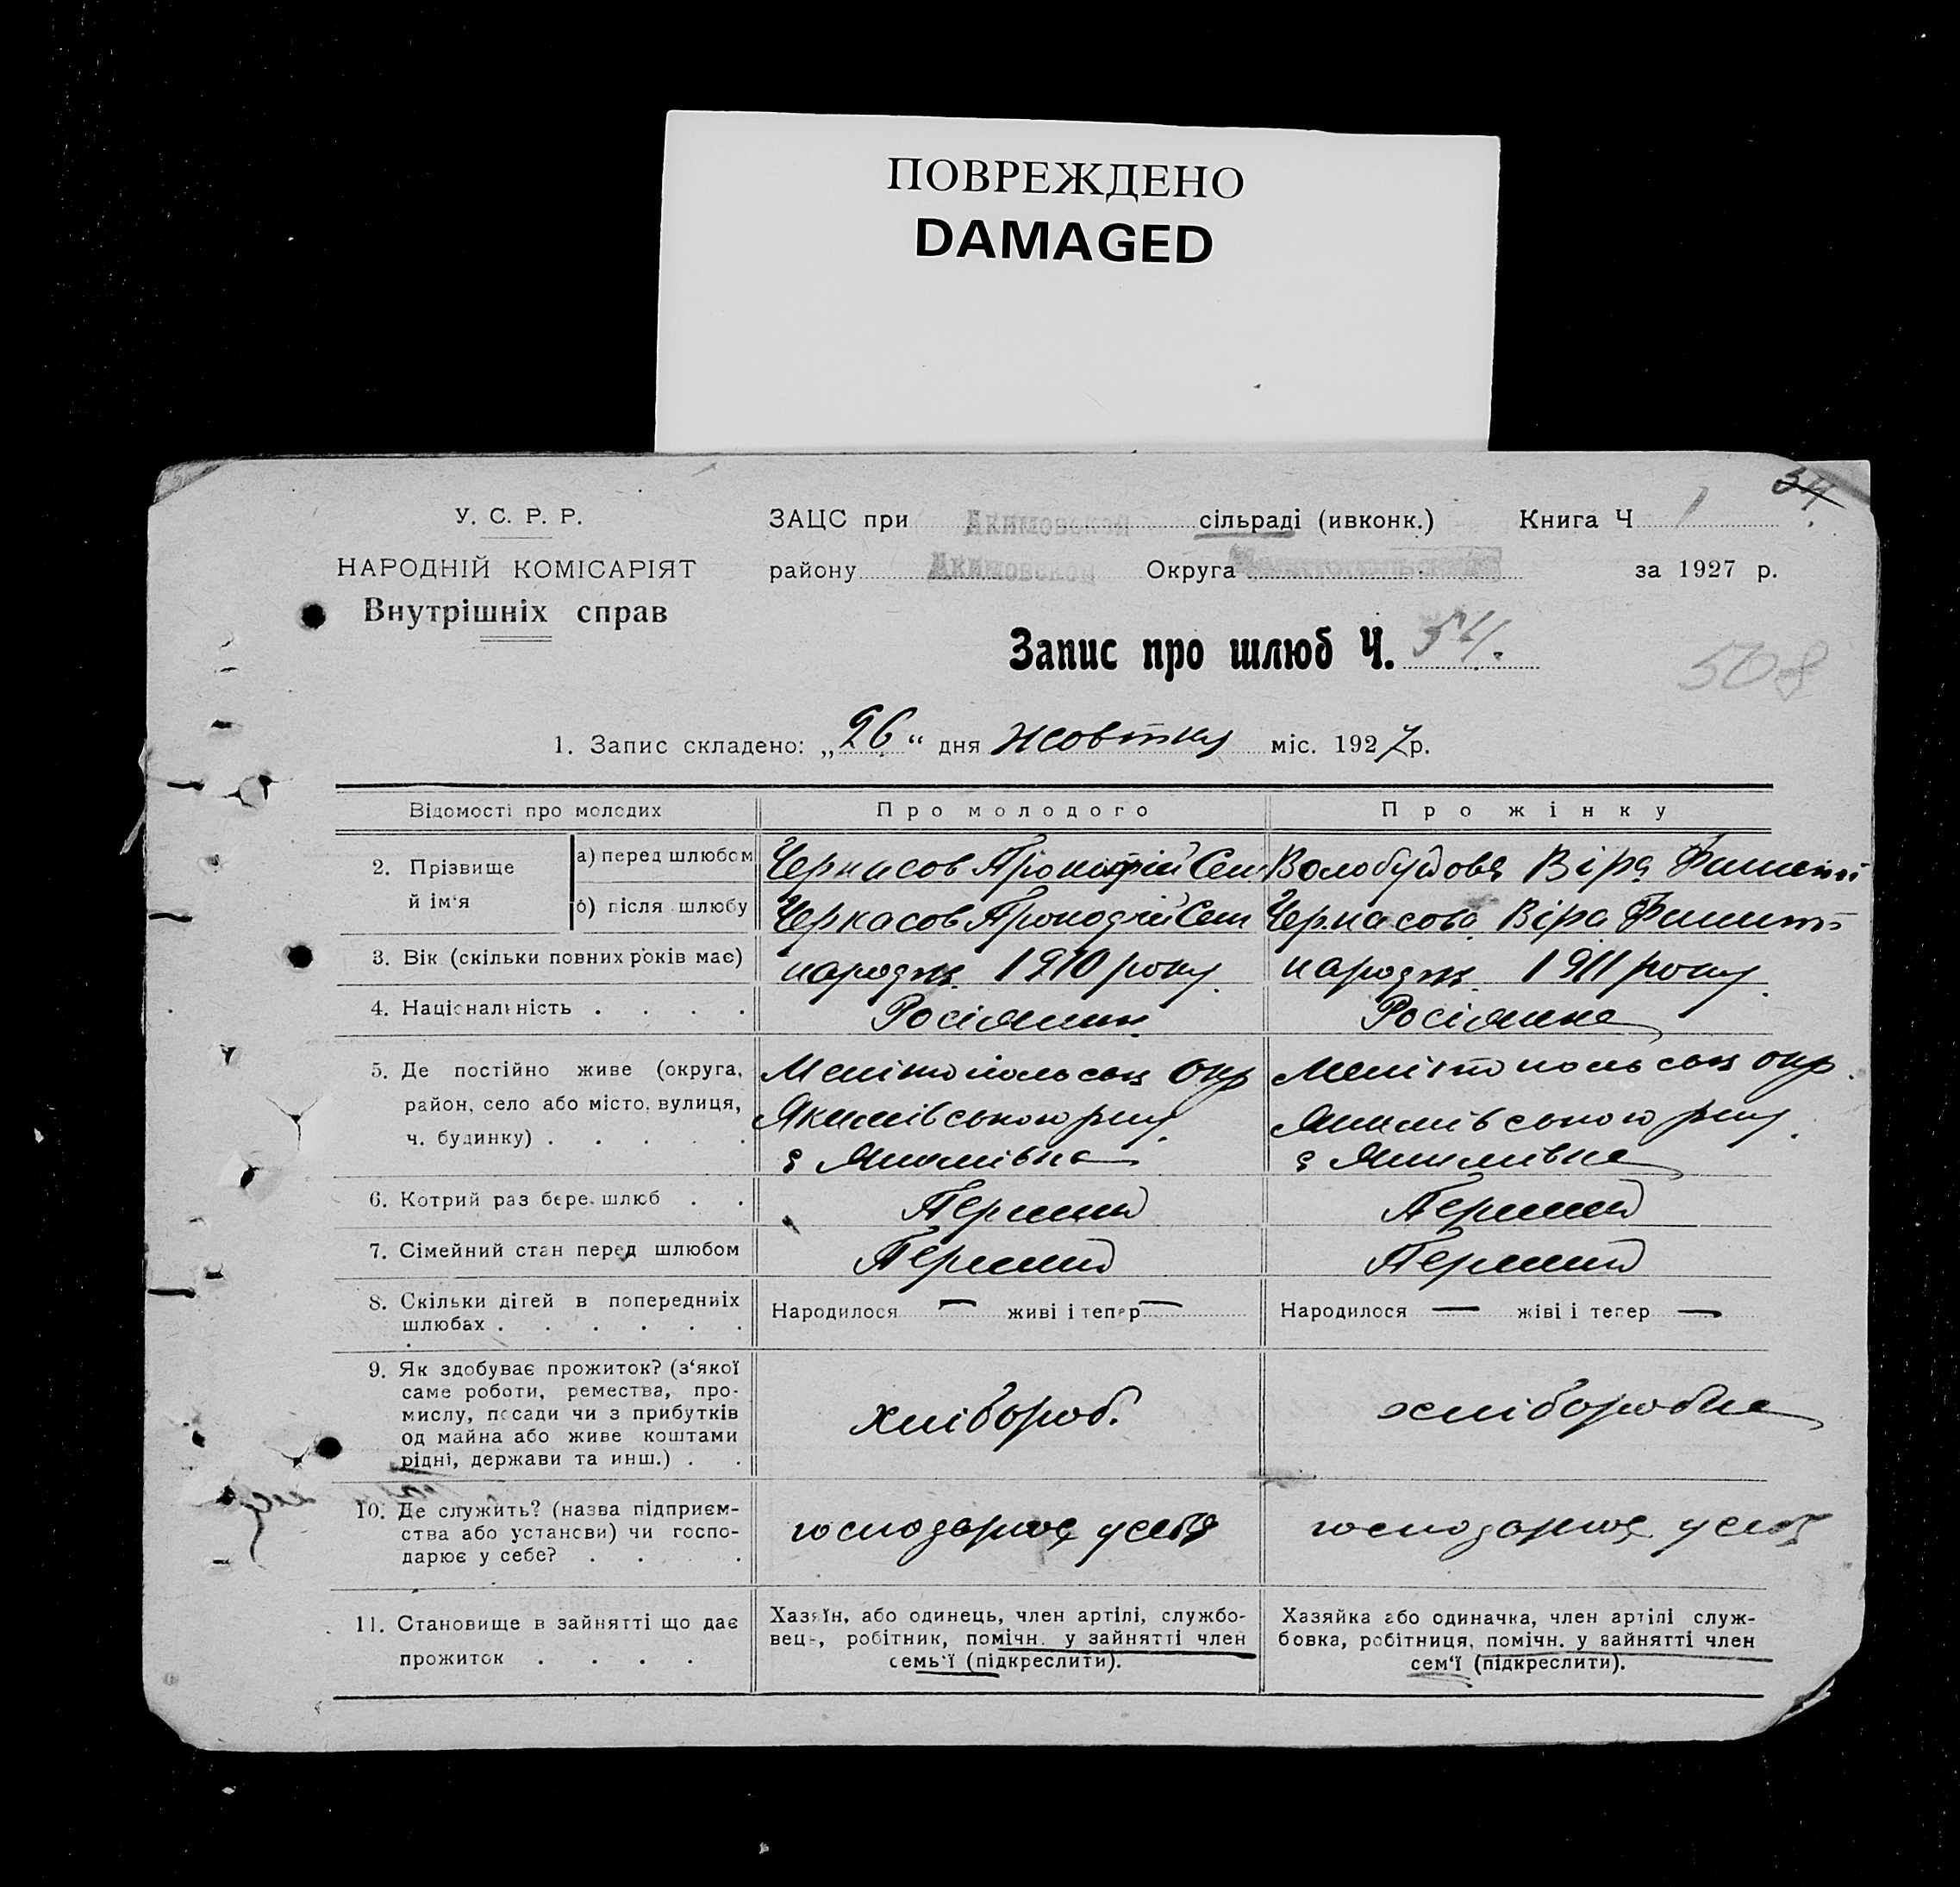 ПОВРЕЖДЕНО
DAMAGED
34
У. С. Р. Р.
НАРОДНІЙ КОМІСАРІЯТ
Внутрішніх справ
ЗАЦС при Акимовской сільраді (ивконк.) Книга Ч 1
району Акимовской Округа за 1927 р.
Запис про шлюб Ч. 54.
508
1. Запис складено: „26“ дня жовтня міс. 1927 р.
Відомості про молодих Про молодого Про жінку
2. Прізвище й ім‘я
а) перед шлюбом Черкасов Прокофій Сем Волобуєва Віра
б) після шлюбу Черкасов Прокофій Сем Черкасова Віра
3. Вік (скільки повних років має) народж. 1910 року. народж. 1911 року.
4. Національність . . . . Росіянин Росіянка
5. Де постійно живе (округа,
район, село або місто, вулиця,
ч. будинку) . . . . .
Мелітопольськ окр
Якимівського р-ну.
с Якимівка
Мелітопольськ окр.
Якимівського р-ну.
с Якимівка
6. Котрий раз бере шлюб . . Перший Перший
7. Сімейний стан перед шлюбом Перший Перший
8. Скільки дітей в попередніх
шлюбах . . . . . .
Народилося — живі і тепер —
Народилося — жіві і тепер —
9. Як здобуває прожиток? (з‘якої
саме роботи, ремества, про-
мислу, посади чи з прибутків
од майна або живе коштами
рідні, держави та инш.) . .
хлібороб.
хліборобка
10. Де служить? (назва підприєм-
ства або установи) чи госпо-
дарює у себе? . . . .
господарює у себе
господарює у себе
11. Становище в зайнятті що дає
прожиток . . . .
Хазяїн, або одинець, член артілі, службо-
вець, робітник, помічн. у зайнятті член
семь‘ї (підкреслити).
Хазяйка або одиначка, член артілі служ-
бовка, робітниця, помічн. у зайнятті член
сем‘ї (підкреслити).